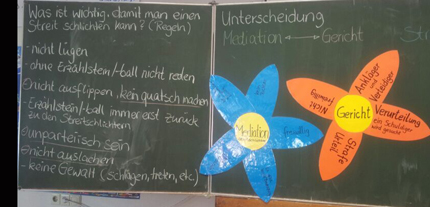 Was ist wichtig, damit man einen
Streit schlichten kann? (Regeln)
- nicht lügen
- ohne Erzählstein/-ball nicht reden
nicht ausflippen, kein quatsch machen
- Erzählstein/-ball immer erst zurück
zu den Streitschlichtern
unparteiisch sein
nicht auslachen
- keine Gewalt (schlagen, treten, etc.)
Unterscheidung
Mediation ↔ Gericht
Str
Mediation
freiwillig
Gericht
Ankläger
und
Verteidiger
Verurteilung
ein Schuldiger
wird gesucht
Strafe
Urteil
Nicht
freiwillig